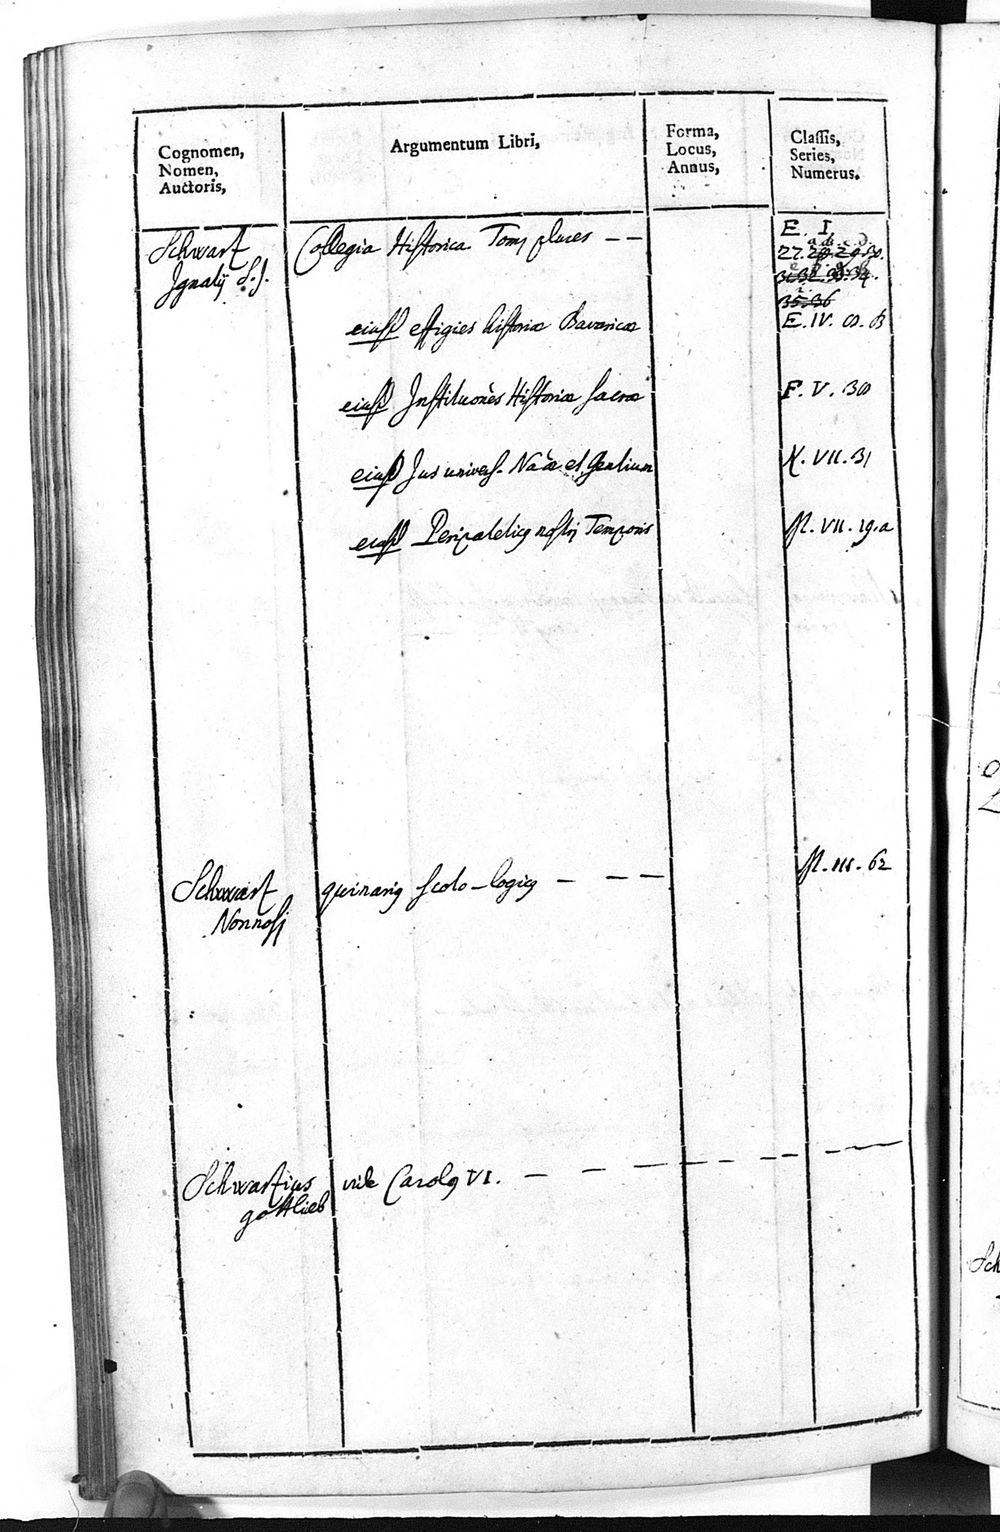 Cognomen,
Nomen,
Auctoris,
Argumentum Libri,
Forma,
Locus,
Annus,
Classis,
Series,
Numerus.
Schwartz
Ignatij S.J.
Collegia Historica Tomj plures – –
E. I.
27. 28. 29. 30.
35.36
eiusd effigies historiæ Bavaricæ
E. IV.
eiusd Institutiones Historiæ Sacræ
F. V. 30
eiusd Jus univers. Naæ et Gentium
X. VII. 31
eiusd Peripateticq nostrj Temporis
M. VII. 29.a
Schwartz
Nonnosj
quinariq scoto-logicq – – –
M. III. 62
Schwartzius
gottlieb
vide Carolq VI. – – – – – –
Sch